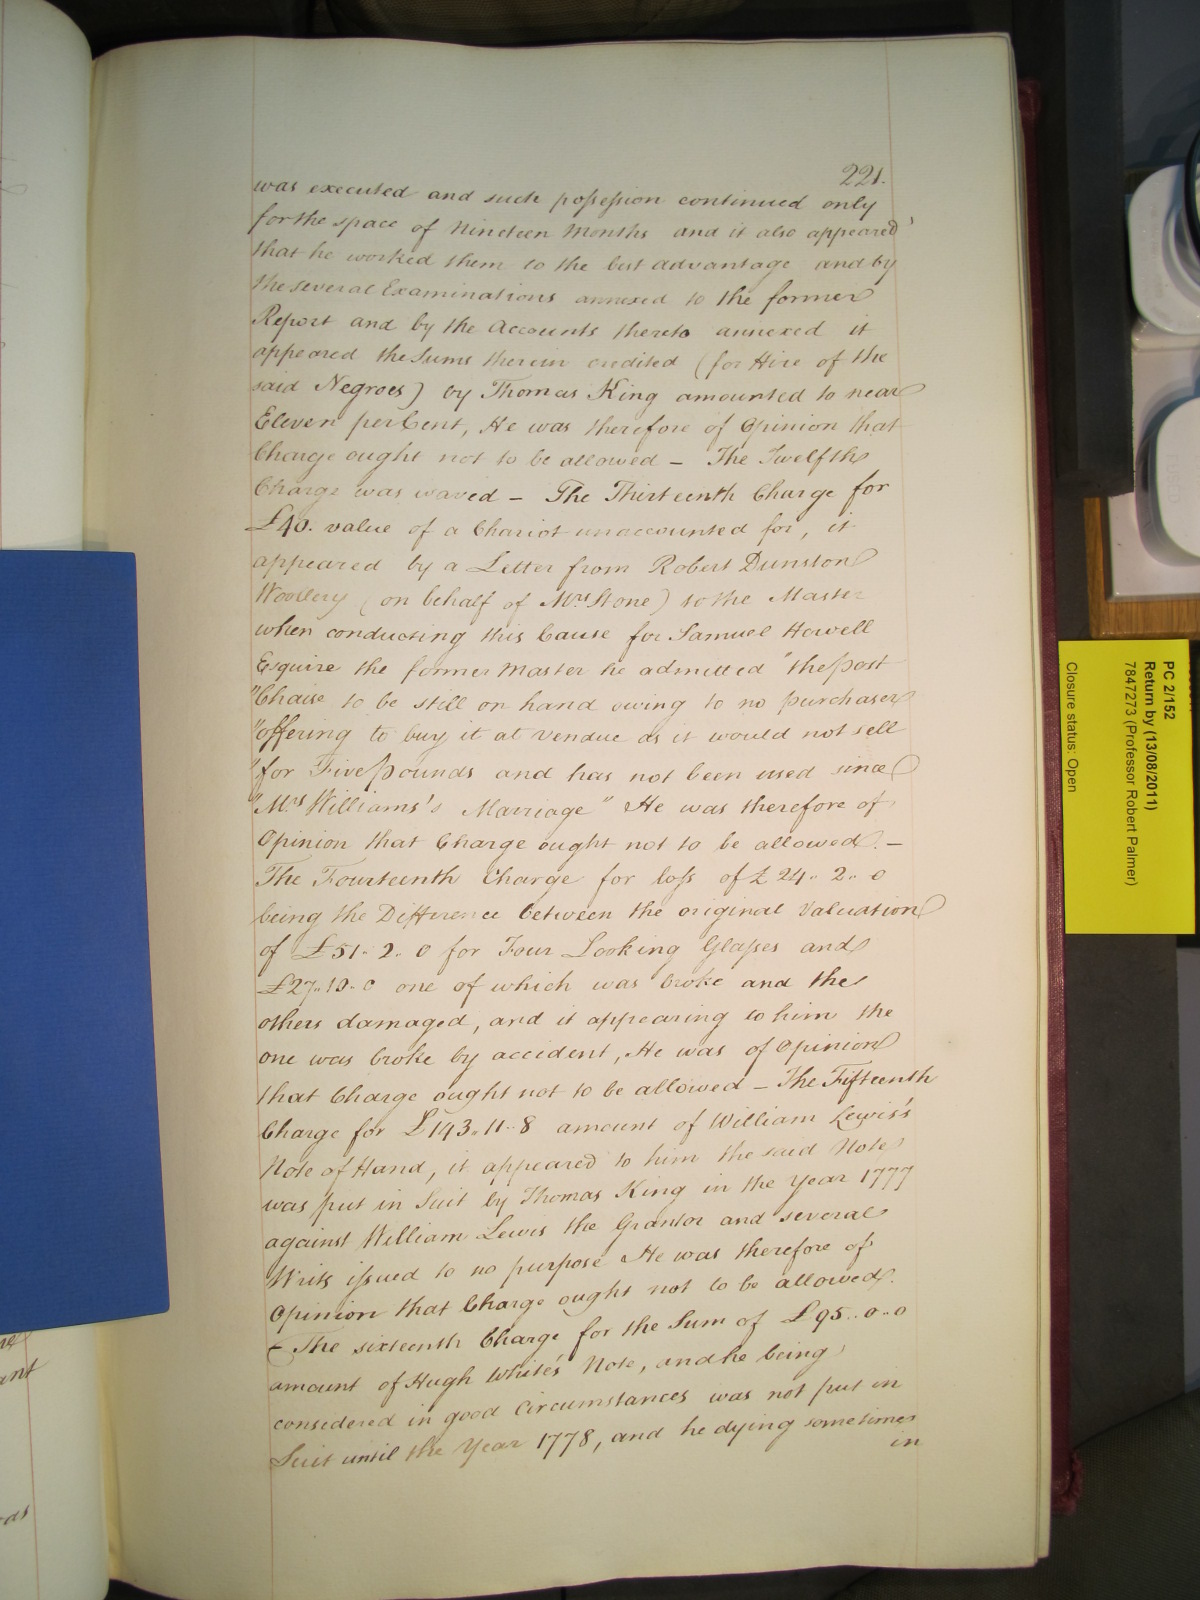 221.
was executed and such possession continued only
for the space of Nineteen Months and it also appeared
that he worked them to the best advantage and by
the several Examinations annexed to the former
Report and by the Accounts thereto annexed it
appeared the Sums therein credited (for Hire of the
said Negroes) by Thomas King amounted to near
Eleven per Cent, He was therefore of Opinion that
Charge ought not to be allowed – The Twelfth
Charge was waved – The Thirteenth Charge for
£40. value of a Chariot unaccounted for, it
appeared by a Letter from Robert Dunston
Woollery (on behalf of Mrs Stone) to the Master
when conducting this Cause for Samuel Howell
Esquire the former Master he admitted "the post
"Chaise to be still on hand owing to no purchaser
"offering to buy it at Vendue as it would not sell
"for Five Pounds and has not been used since
"Mrs Williams's Marriage" He was therefore of
Opinion that Charge ought not to be allowed. –
The Fourteenth Charge for loss of £24.. 2.. 0
being the Difference between the original Valuation
of £51.. 2.. 0 for Four Looking Glasses and
£27..10..0 one of which was broke and the
others damaged, and it appearing to him the
one was broke by accident, He was of Opinion
that Charge ought not to be allowed – The Fifteenth
Charge for £143..11..8 amount of William Lewis's
Note of Hand, it appeared to him the said Note
was put in Suit by Thomas King in the Year 1777
against William Lewis the Grantor and several
Writs issued to no purpose He was therefore of
Opinion that Charge ought not to be allowed.
– The sixteenth Charge for the Sum of £95..0..0
amount of Hugh White's Note, and he being
considered in good Circumstances was not put in
Suit until the Year 1778, and he dying sometimes
in
PC 2/152
Return by (13/08/2011)
7847273 (Professor Robert Palmer)
Closure status: Open